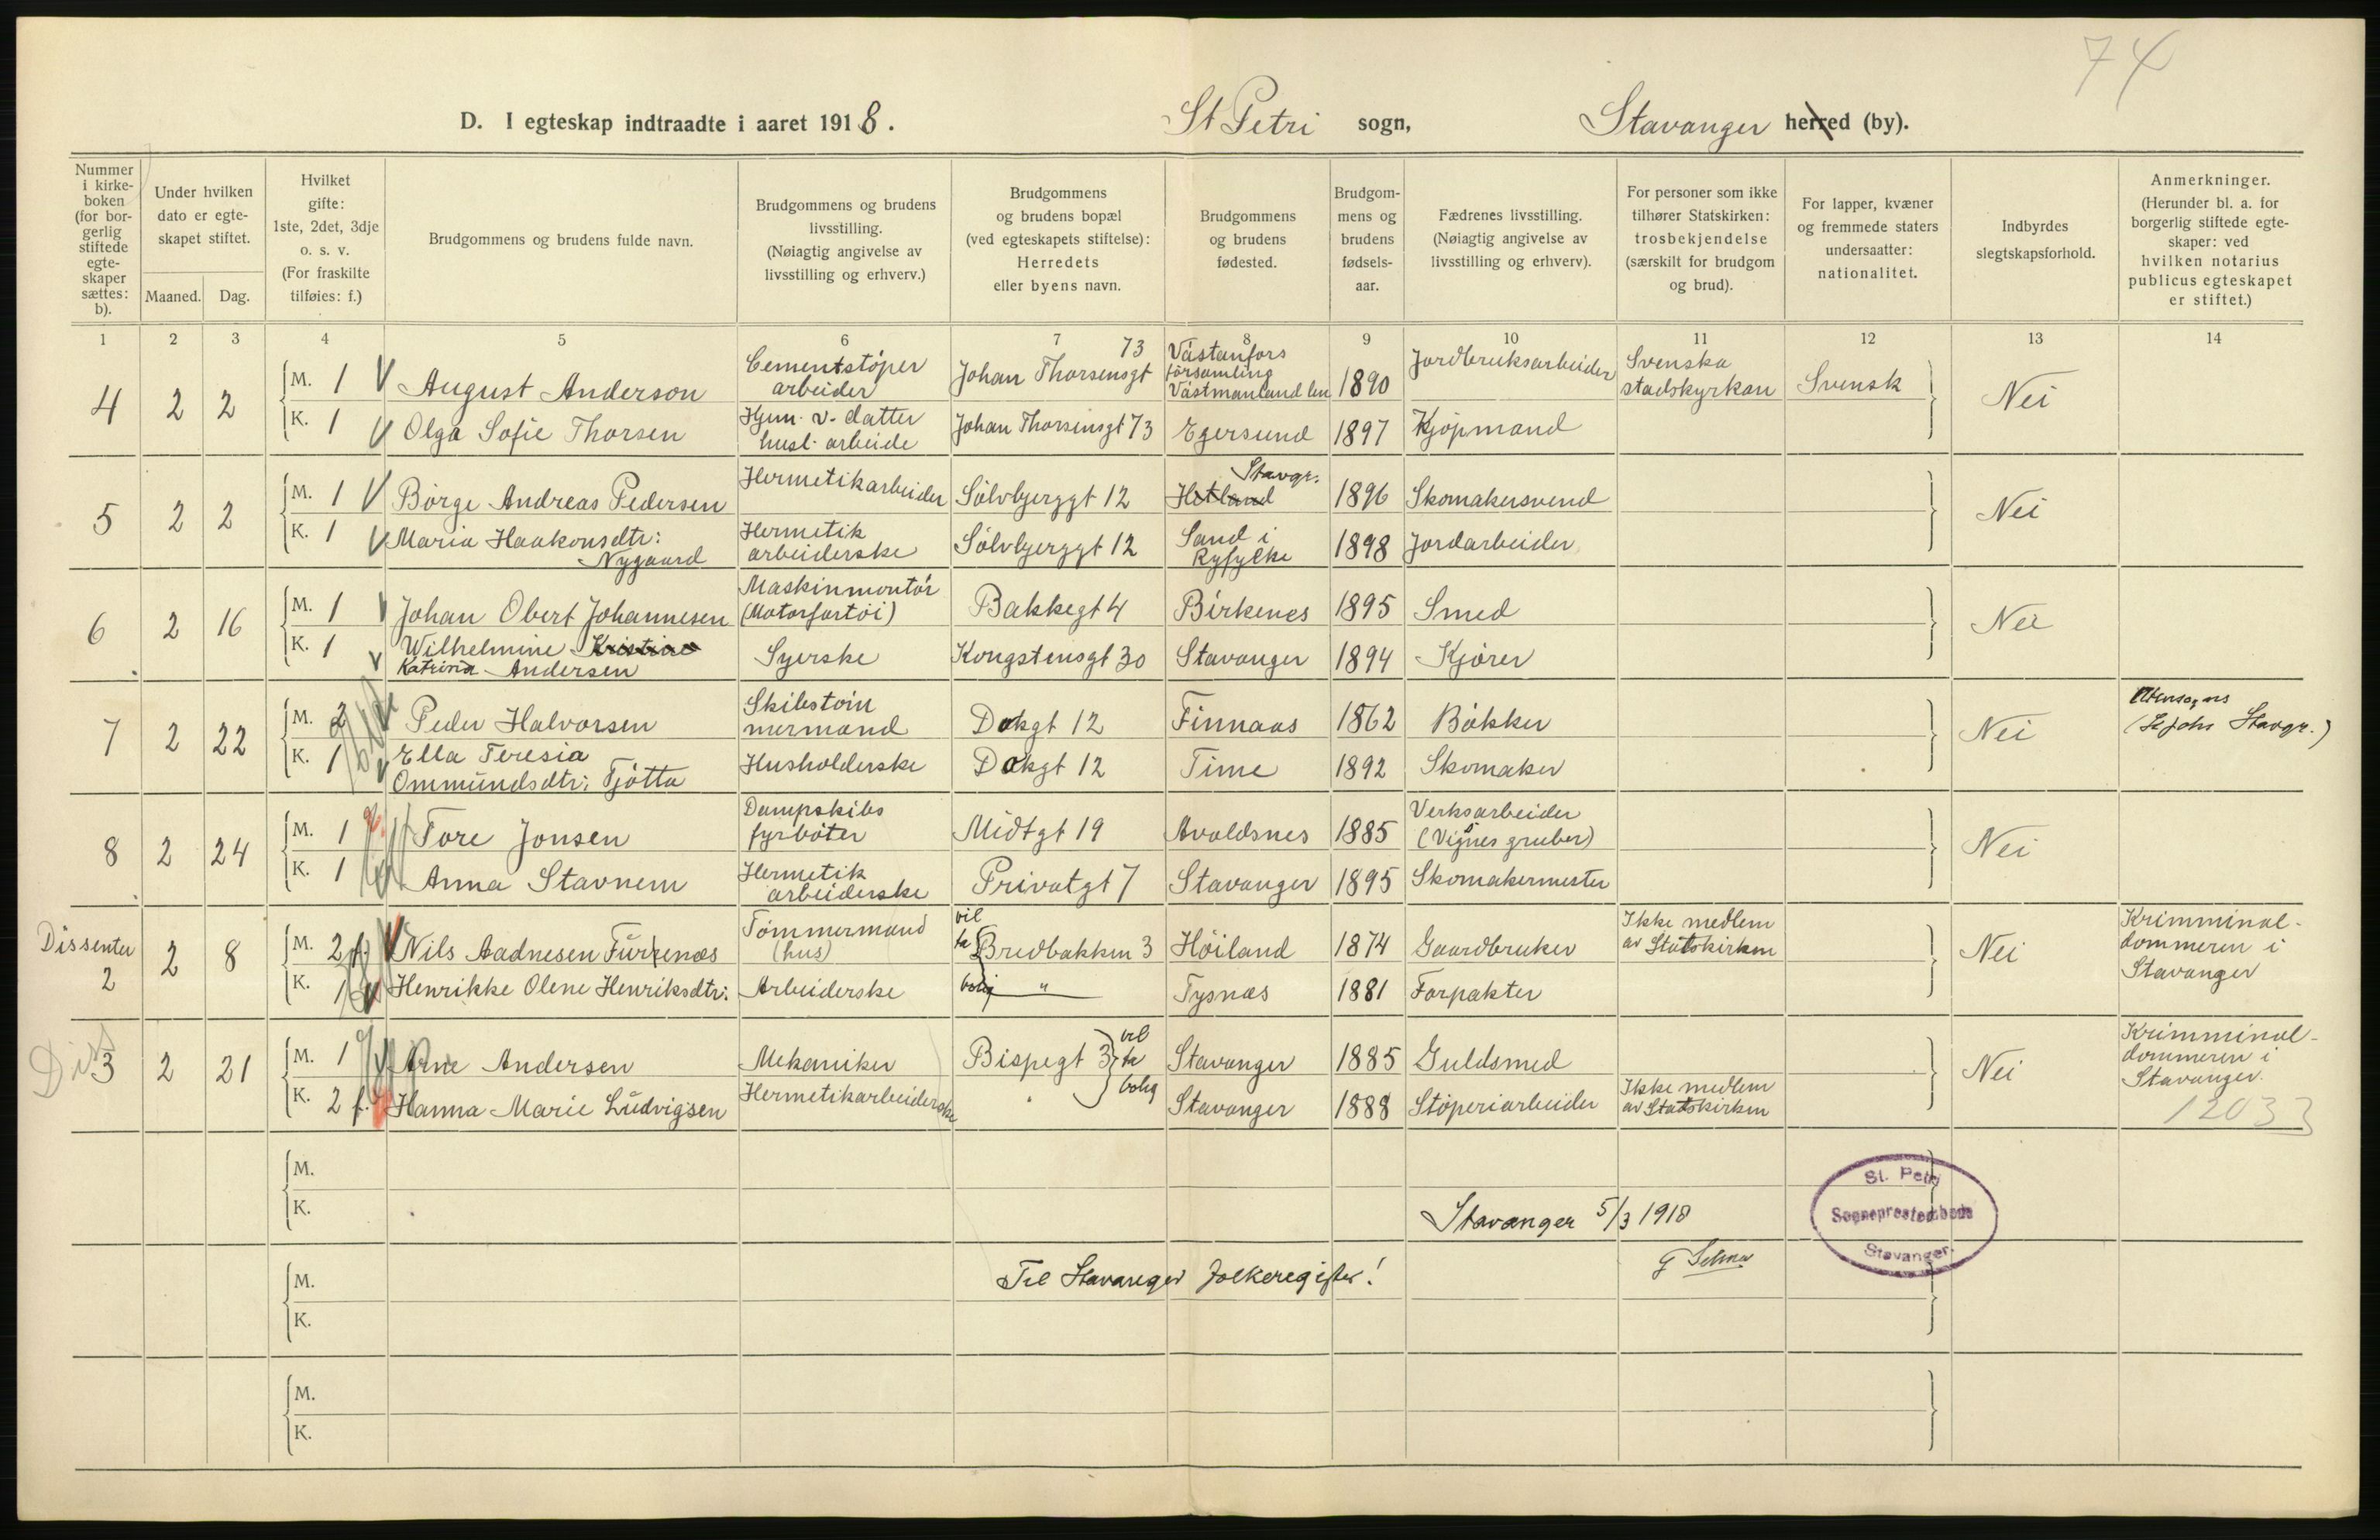 74
D. I egteskap indtraadte i aaret 1918. St Petri sogn, Stavanger herred (by).
Nummer i kirke-boken (for bor-gerlig stiftede egte-skaper sættes: b).
Under hvilken dato er egte-skapet stiftet.
Maaned. Dag.
Hvilket gifte: 1ste, 2det, 3dje o. s. v. (For fraskilte tilføies: f.)
Brudgommens og brudens fulde navn.
Brudgommens og brudens livsstilling. (Nøiagtig angivelse av livsstilling og erhverv.)
Brudgommens og brudens bopæl (ved egteskapets stiftelse): Herredets eller byens navn.
Brudgommens og brudens fødested.
Brudgom-mens og brudens fødsels-aar.
Fædrenes livsstilling. (Nøiagtig angivelse av livsstilling og erhverv).
For personer som ikke tilhører Statskirken: trosbekjendelse (særskilt for brudgom og brud).
For lapper, kvæner og fremmede staters undersaatter: nationalitet.
Indbyrdes slegtskapsforhold.
Anmerkninger. (Herunder bl. a. for borgerlig stiftede egte-skaper: ved hvilken notarius publicus egteskapet er stiftet.)
1 2 3 4 5 6 7 8 9 10 11 12 13 14
4 2 2
M. 1 August Anderson Cementstøper arbeider Johan Thorsensgt 73 Västanfors församling Västmanland len 1890 Jordbruksarbeider Svenska stadskyrkan Svensk Nei
K. 1 Olga Sofie Thorsen Hjem. v. datter husl. arbeide Johan Thorsensgt 73 Egersund 1897 Kjøpmand
5 2 2
M. 1 Børge Andreas Pedersen Hermetikarbeider Sølvbjerggt 12 Hetland Stavgr. 1896 Skomakersvend Nei
K. 1 Maria Haakonsdtr: Nygaard Hermetik arbeiderske Sølvbjerggt 12 Sand i Ryfylke 1898 Jordarbeider
6 2 16
M. 1 Johan Obert Johannesen Maskinmontør (Motorfartøi) Bakkegt 4 Birkenes 1895 Smed Nei
K. 1 Wilhelmine Kristine Katrina Andersen Syerske Kongstensgt 30 Stavanger 1894 Kjører
7 2 22
M. 2 Peder Halvorsen Skibstøm mermand Dokgt 12 Finnaas 1862 Bøkker Nei Utensogns (St Johs Stavgr.)
K. 1 Ella Teresia Ommundsdtr: Tjøtta Husholderske Dokgt 12 Time 1892 Skomaker
8 2 24
M. 1 Tore Jonsen Dampskibs fyrbøter Midtgt 19 Avaldsnes 1885 Verksarbeider (Vigsnes gruber) Nei
K. 1 Anna Stavnem Hermetik arbeiderske Privatgt 7 Stavanger 1895 Skomakermester
Dissenter 2 2 8
M. 2 f. Nils Aadnesen Furenæs Tømmermand (hus) vil ta Bredbakken 3 Høiland 1874 Gaardbruker Ikke medlem av Statskirken Nei Krimminal-dommeren i Stavanger
K. 1 Henrikke Olene Henriksdtr: Arbeiderske bolig " Tysnæs 1881 Forpakter
Dis 3 2 21
M. 1 Arne Andersen Mekaniker Bispegt 3 vil ta bolig Stavanger 1885 Guldsmed Nei Krimminal-dommeren i Stavanger.
K. 2 f. Hanna Marie Ludvigsen Hermetikarbeiderske " Stavanger 1888 Støperiarbeider Ikke medlem av Statskirken
12033
M.
K.
Stavanger 5/3 1918
St. Petri Sogneprestembede Stavanger.
M.
K.
Til Stavanger folkeregister!
M.
K.